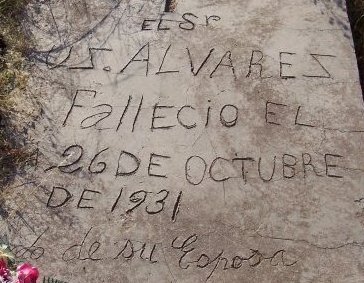 EL Sr
US. ALVAREZ
Fallecio EL
26 DE OCTUBRE
DE 1931
do de su Esposa